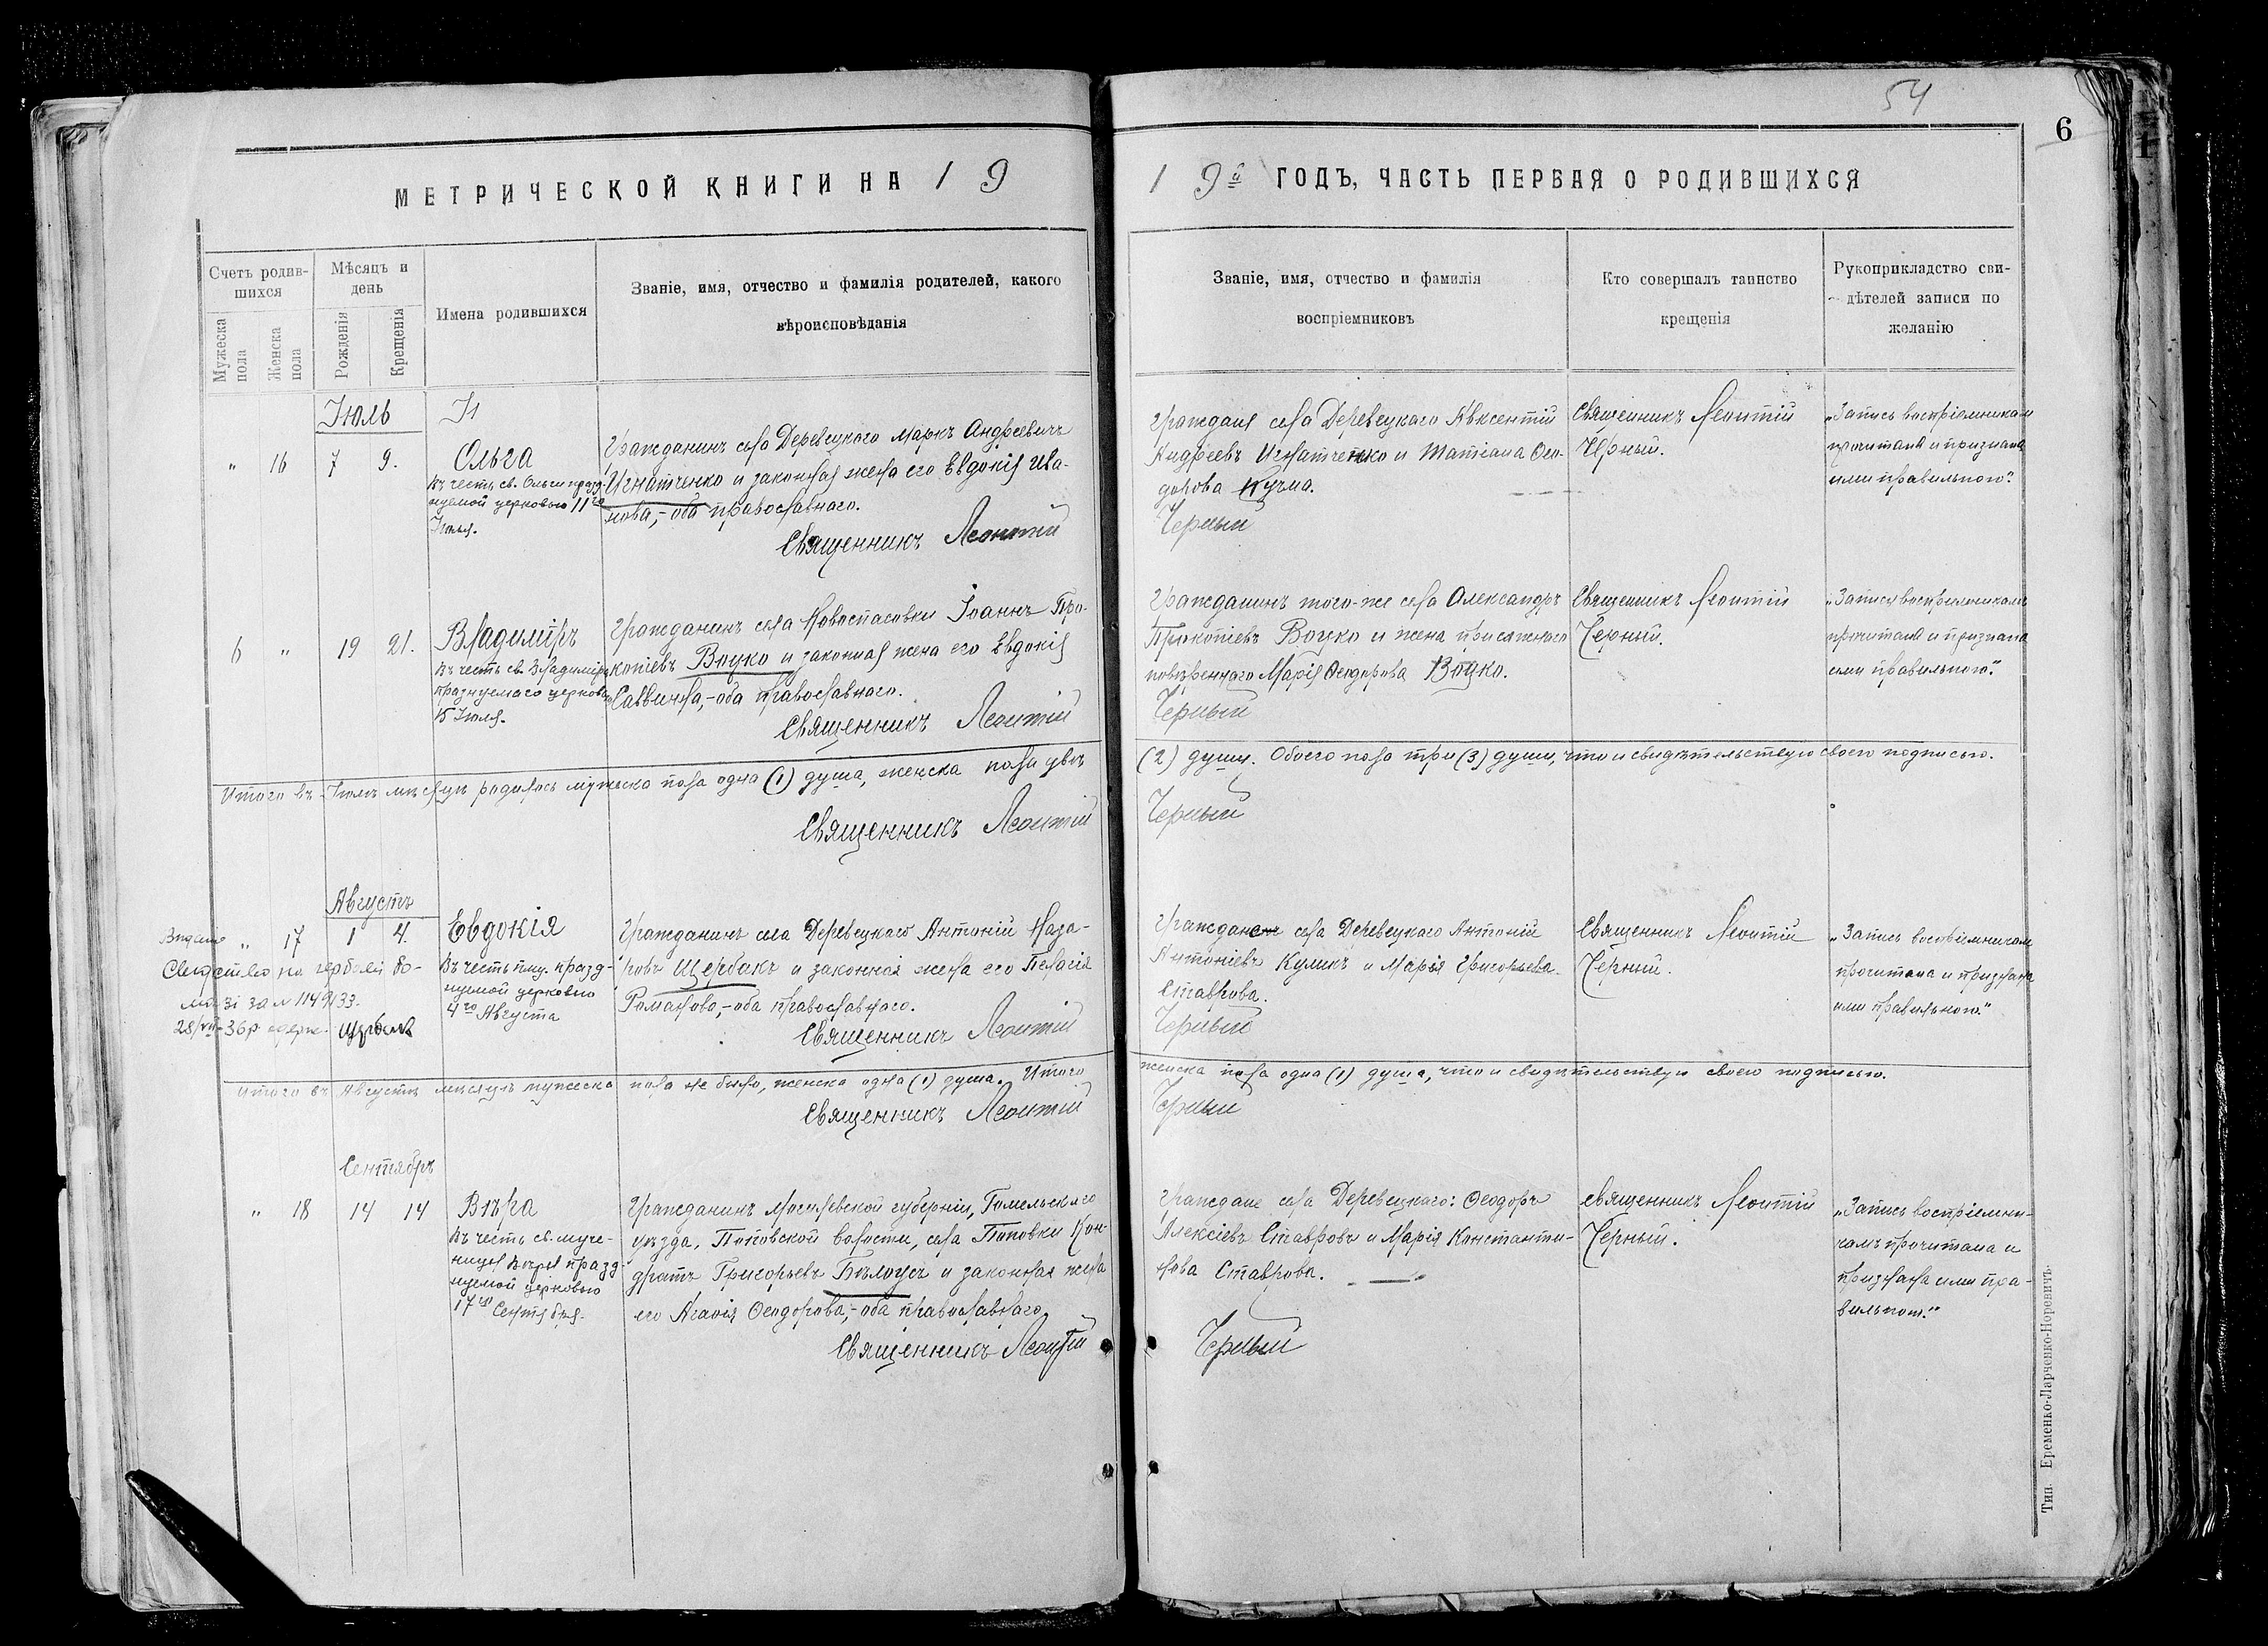 54
6
МЕТРИЧЕСКОЙ КНИГИ НА 1 9
1 9й ГОДЪ, ЧАСТЬ ПЕРВАЯ О РОДИВШИХСЯ
Счетъ родив-
шихся
Мужеска
пола
Женска
пола
Мѣсяцъ и
день
Рожденія
Крещенія
Имена родившихся
Званіе, имя, отчество и фамилія родителей, какого
вѣроисповѣданія
Званіе, имя, отчество и фамилія
воспріемниковъ
Кто совершалъ таинство
крещенія
Рукоприкладство сви-
дѣтелей записи по
желанію
Іюль
„ 16 7 9.
Ольга
Въ честь св. Ольги празд-
нуемой церковью 11го
Іюля.
Гражданинъ села Деревецкаго Маркъ Андреевичъ
Игнатченко и законная жена его Евдокія Ива-
нова,-оба православнаго.
Священникъ Леонтій
Граждане села Деревецкаго Авксентій
Андреевъ Игнатченко и Татіана Ѳео-
дорова Кучма.
Черный
Священникъ Леонтій
Черный.
„Запись воспріемникам
прочитана и признана
ими правильною".
6 „ 19 21.
Владиміръ
Въ честь св. Владиміра
празнуемаго церковью
15 Іюля.
Гражданинъ села Новоспасовки Іоаннъ Про-
копіевъ Воцко и законная жена его Евдокія
Саввина,-оба православнаго.
Священникъ Леонтій
Гражданинъ того-же села Александръ
Прокопіевъ Воцко и жена присяжнаго
повѣреннаго Марія Ѳеодорова Воцко.
Черный
Священникъ Леонтій
Черный.
„Запись воспріемникамъ
прочитана и признана
ими правильною".
Итого въ Іюлѣ мѣсяцѣ родилось мужеска пола одна (1) душа, женска пола двѣ
(2) души. Обоего пола три (3) души, что и свидѣтельствую своею подписью.
Священникъ Леонтій
Черный
Августъ
„ 17 1 4.
Видане
28/VII-36р. Щербак
Евдокія
Въ честь пмц. празд-
нуемой церковью
4го Августа
Гражданинъ села Деревецкаго Антоній Наза-
ровъ Щербакъ и законная жена его Пелагія
Романова,-оба православнаго.
Священникъ Леонтій
Граждане села Деревецкаго Антоній
Антоніевъ Куликъ и Марія Григорьева
Ставрова.
Черный
Священникъ Леонтій
Черный.
„Запись воспріемникам
прочитана и признана
ими правильною."
Итого въ Августѣ мѣсяцѣ мужеска пола не было, женска одна (1) душа. Итого
женска пола одна (1) душа, что и свидѣтельствую своею подписью.
Священникъ Леонтій
Черный
Сентябрь
„ 18 14 14
Вѣра
Въ честь св. муче-
ницы Вѣры празд-
нуемой церковью
17го Сентября.
Гражданинъ Могилевской губерніи, Гомельскаго
уѣзда, Поповской волости, села Поповки Кон-
дратъ Григорьевъ Бѣлоусъ и законная жена
его Агафія Ѳеодорова,-оба православнаго
Священникъ Леонтій
Граждане села Деревецкаго: Ѳеодоръ
Алексіевъ Ставровъ и Марія Константи-
нова Ставрова.
Черный
Священникъ Леонтій
Черный.
„Запись воспріемни-
камъ прочитана и
признана ими пра-
вильною."
Тип. Еременко-Ларченко-Норевичъ.